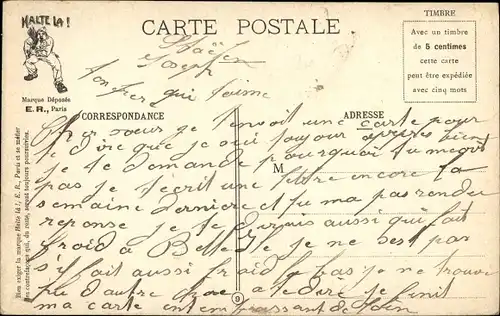 HALTE LA !
CARTE POSTALE
TIMBRE
Avec un timbre
de 5 centimes
cette carte
peut être expédiée
avec cinq mots
Marque Déposée
E. R., Paris
Joseph
ton frer qui t'aime
CORRESPONDANCE
ADRESSE
M
Bien exiger la marque Halte là !, E. R., Paris et se méfier
des contrefaçons qui, du reste, seront toujours poursuivies.
Cher soeur je t'envoit une carte pour
te dire que je sui toujour bien
je te demande pourquoi tu
pas je t'ecrit une lettre encore la
semaine derniere et tu ma pas rendu
reponse je te dirais aussi qui fait
froid a je ne sest pas
s'il fait aussi froid la bas je ne trouve
plu d'autre chose a te dire je finit
ma carte en t'embrassant de loin
9